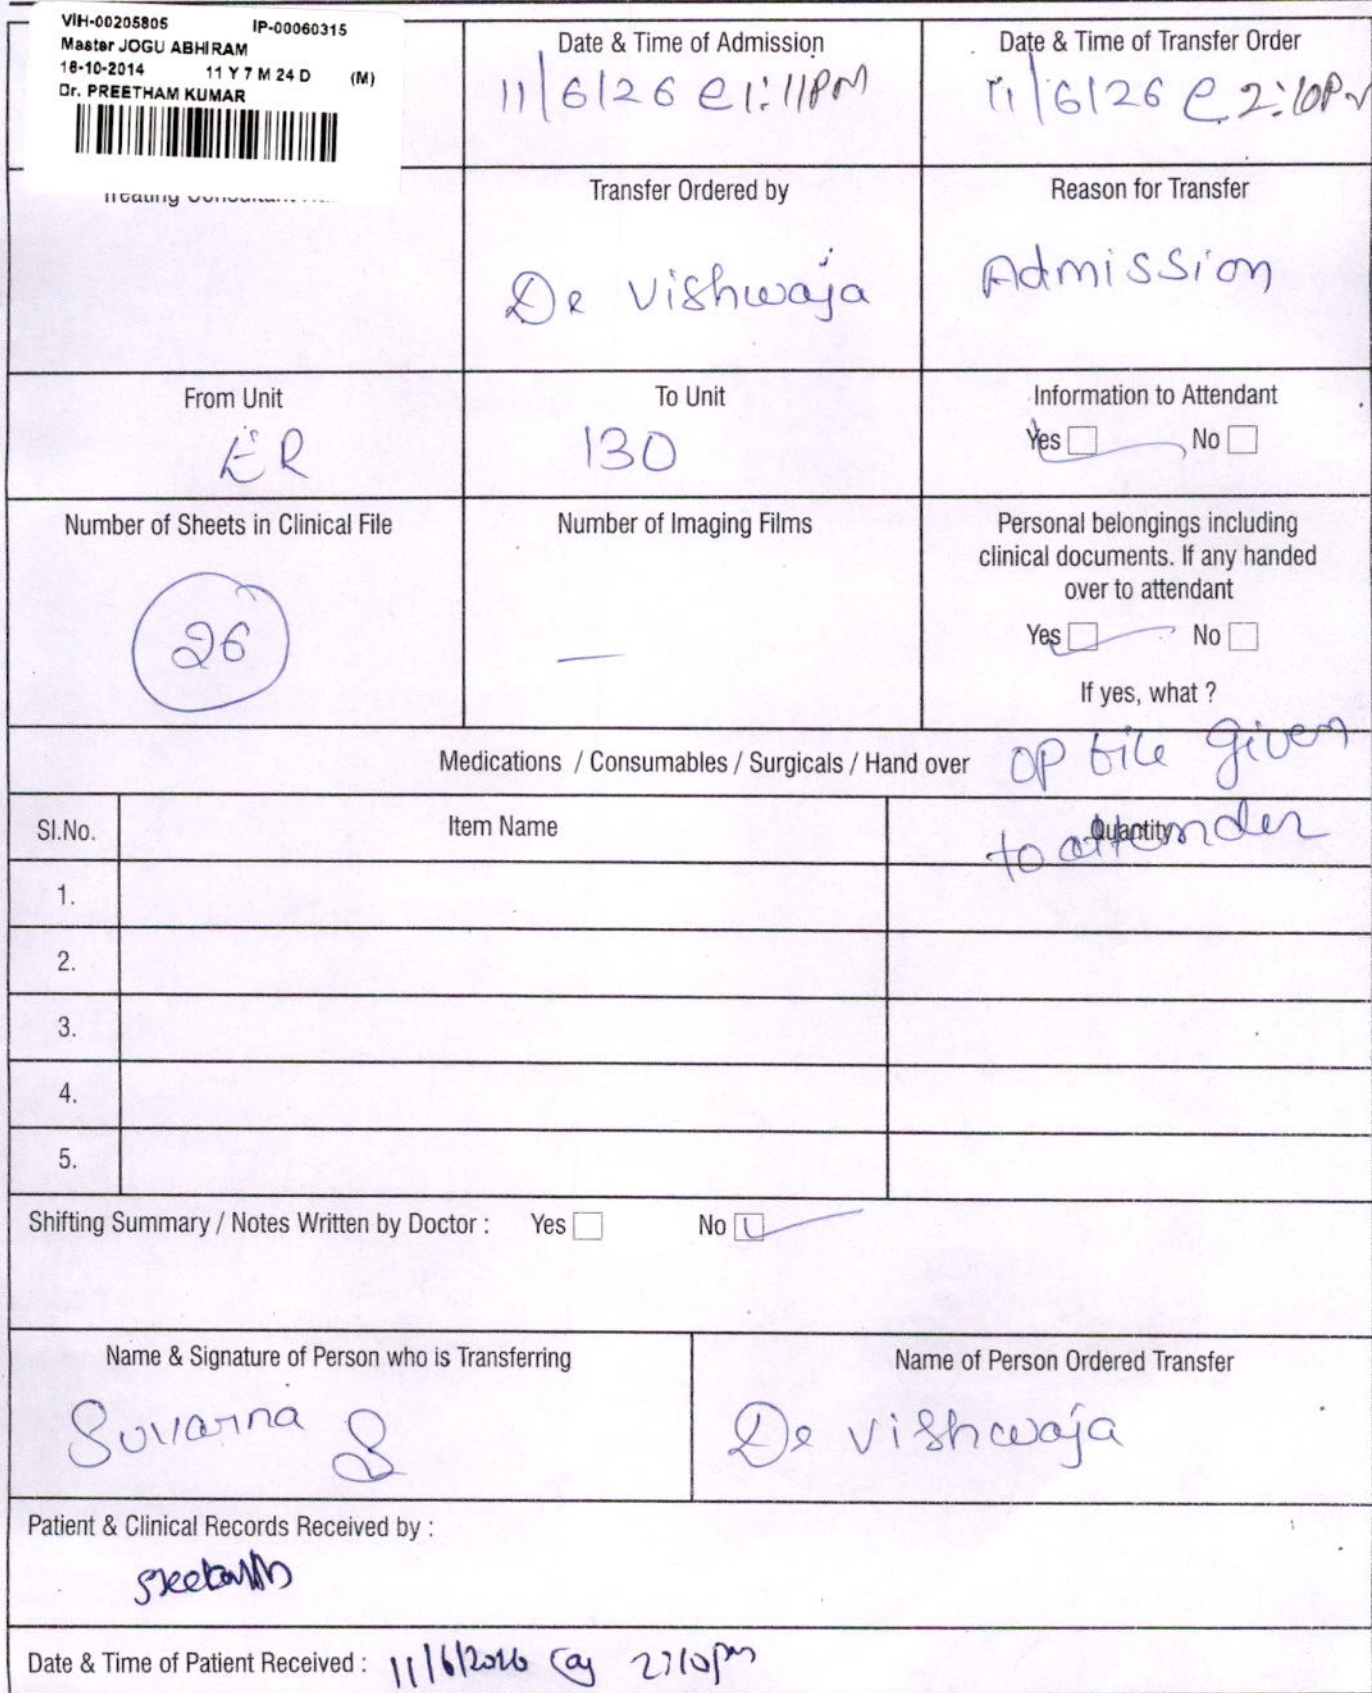 VIH-00205805 IP-00060315
Master JOGU ABHIRAM
18-10-2014 11 Y 7 M 24 D (M)
Dr. PREETHAM KUMAR
Date & Time of Admission
11/6/26 @ 1:11PM
Date & Time of Transfer Order
11/6/26 @ 2:10PM
Treating
Transfer Ordered by
Dr Vishwaja
Reason for Transfer
Admission
From Unit
ER
To Unit
130
Information to Attendant
Yes No
Number of Sheets in Clinical File
26
Number of Imaging Films
—
Personal belongings including
clinical documents. If any handed
over to attendant
Yes No
If yes, what ?
OP file given
to attender
Medications / Consumables / Surgicals / Hand over
Sl.No. Item Name Quantity
1.
2.
3.
4.
5.
Shifting Summary / Notes Written by Doctor : Yes No
Name & Signature of Person who is Transferring
Suvarna
Name of Person Ordered Transfer
Dr Vishwaja
Patient & Clinical Records Received by :
Date & Time of Patient Received : 11/6/2026 @ 2:10pm